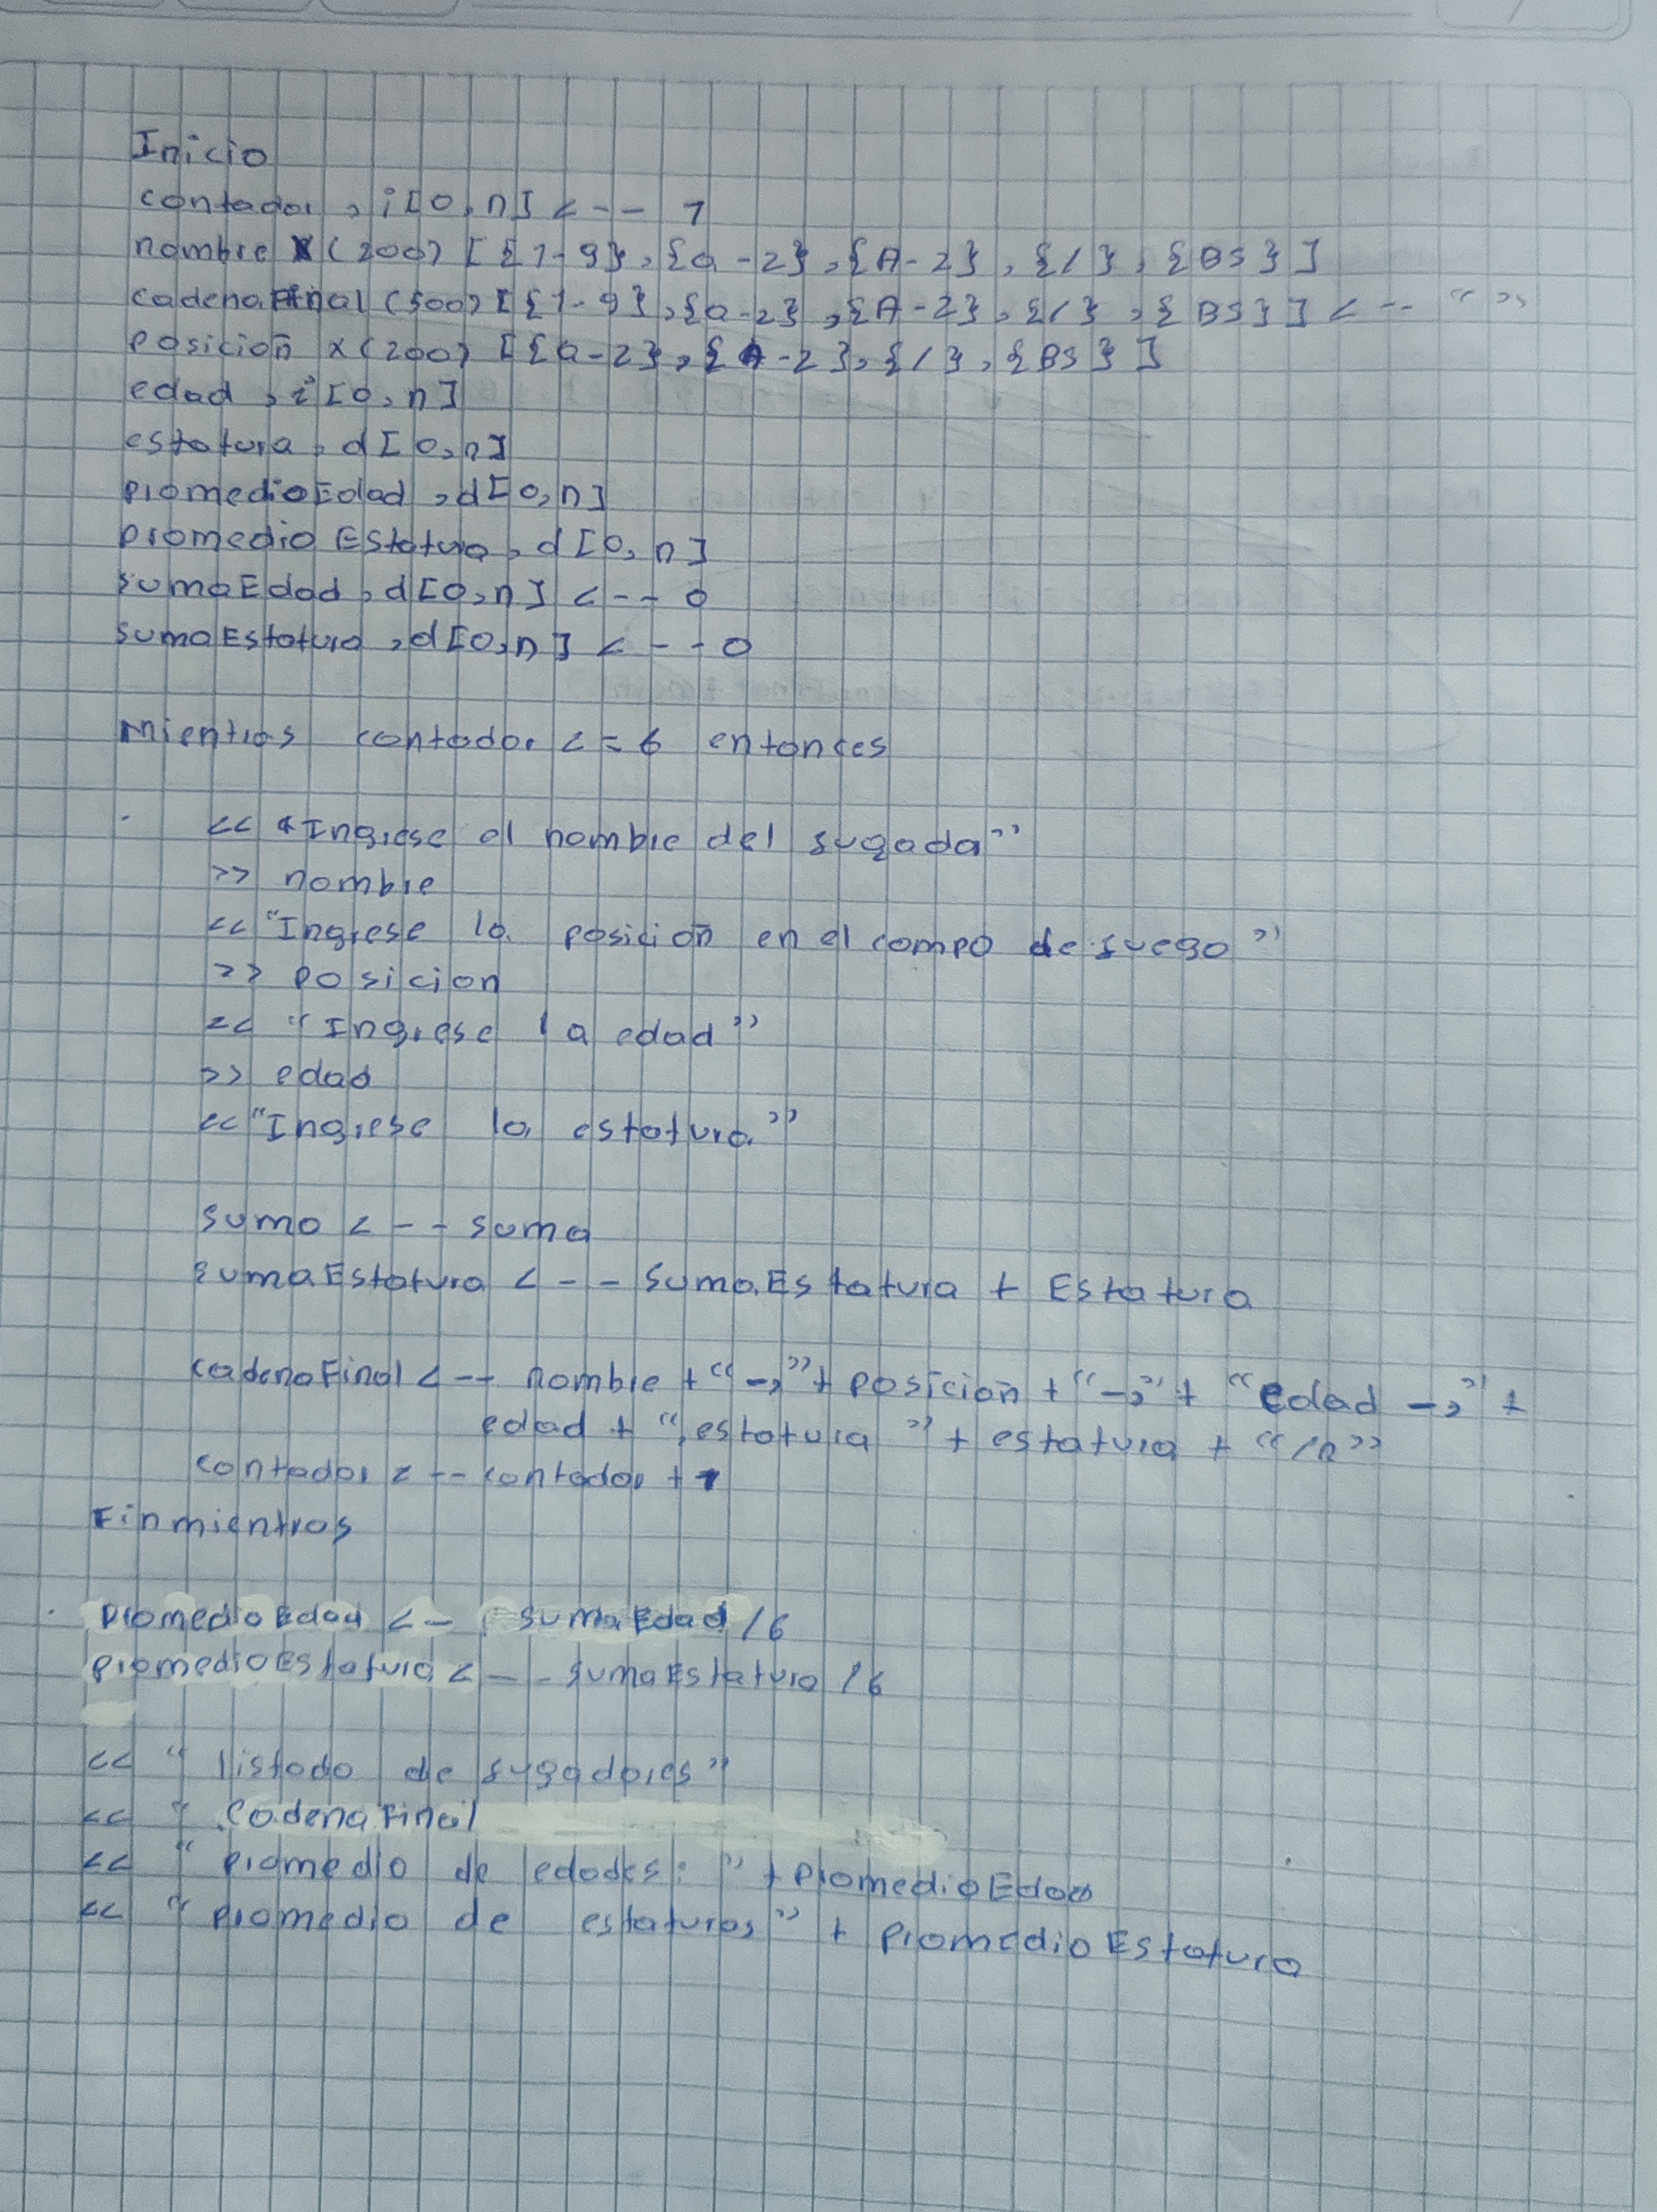 Inicio
contador, i[0,n] <-- 1
nombre X(200) [{1-9},{a-z},{A-Z},{/},{BS}]
cadenaFinal (500) [{1-9},{a-z},{A-Z},{/},{BS}] <-- “ ”
Posición X(200) [{a-z},{A-Z},{/},{BS}]
edad, i[0,n]
estatura, d[0,n]
promedioEdad, d[0,n]
promedio Estatura, d[0,n]
sumaEdad, d[0,n] <-- 0
sumaEstatura, d[0,n] <-- 0
Mientras contador <= 6 entonces
<< “Ingrese el nombre del jugada”
>> nombre
<< “Ingrese la posición en el campo de juego”
>> posicion
<< “Ingrese la edad”
>> edad
<< “Ingrese la estatura”
suma <-- suma
sumaEstatura <-- sumaEstatura + Estatura
cadenaFinal <-- nombre + “-,” + posición + “-,” + “Edad -,” +
edad + “,estatura” + estatura + “/n”
contador <-- contador + 1
Finmientras
promedioEdad <- sumaEdad /6
promedioEstatura <-- sumaEstatura /6
<< “listado de jugadores”
<< “ CadenaFinal
<< “promedio de edades: ” + PromedioEdad
<< “promedio de estaturas” + PromedioEstatura